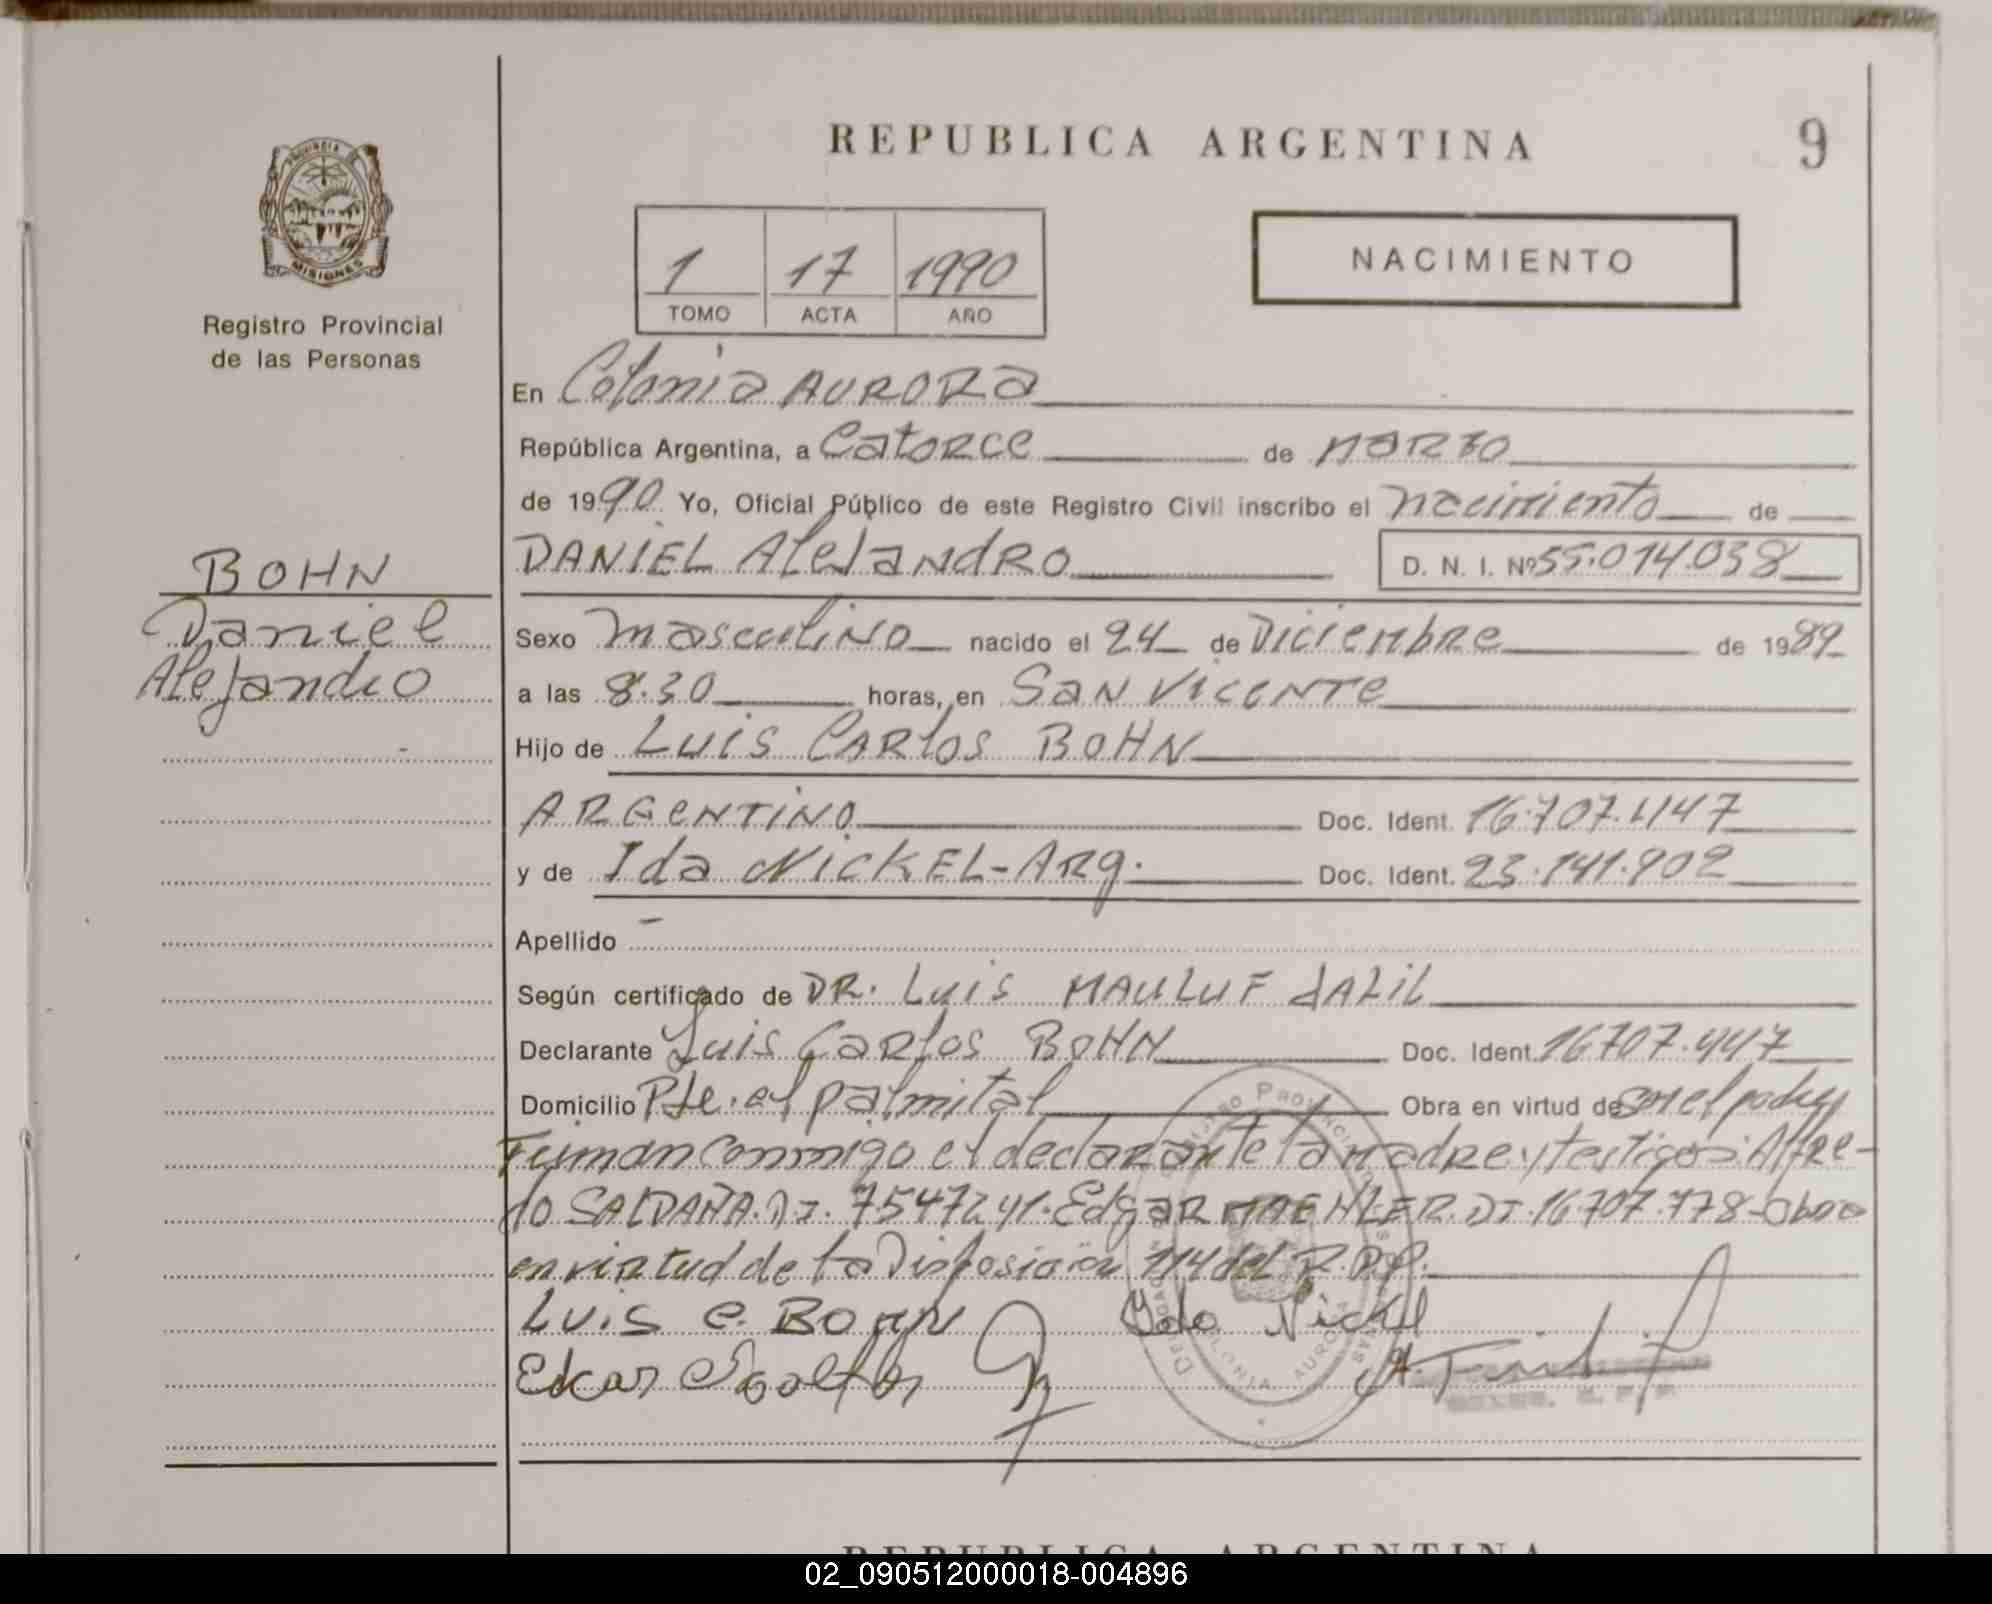 REPUBLICA ARGENTINA
9
PROVINCIA DE
MISIONES
Registro Provincial
de las Personas
1 17 1990
TOMO ACTA AÑO
NACIMIENTO
En Colonia AURORA
República Argentina, a Catorce de MARZO
de 1990. Yo, Oficial Público de este Registro Civil inscribo el nacimiento de
DANIEL AleJandRO D. N. I. Nº 55.014.038
BOHN
Daniel
Alejandro
Sexo masculino nacido el 24 de Diciembre de 1989
a las 8.30 horas, en San Vicente
Hijo de Luis Carlos BOHN
ARGENTINO Doc. Ident. 16.707.447
y de Ida NICKEL-Arg. Doc. Ident. 23.141.902
Apellido -
Según certificado de DR. Luis MAULUF JALIL
Declarante Luis Carlos BOHN Doc. Ident. 16707.447
Domicilio Pje. el palmital Obra en virtud de
Firman conmigo el declarante la madre y testigos: Alfre-
do SALDAÑA. D.I. 7547241. Edgar DI. 16707.778- Obro
en virtud de la Disposición 114 del R.P.P.
Luis C. BOHN Ida Nickel
REGISTRO PROVINCIAL
COLONIA AURORA
REPUBLICA ARGENTINA
02_090512000018-004896